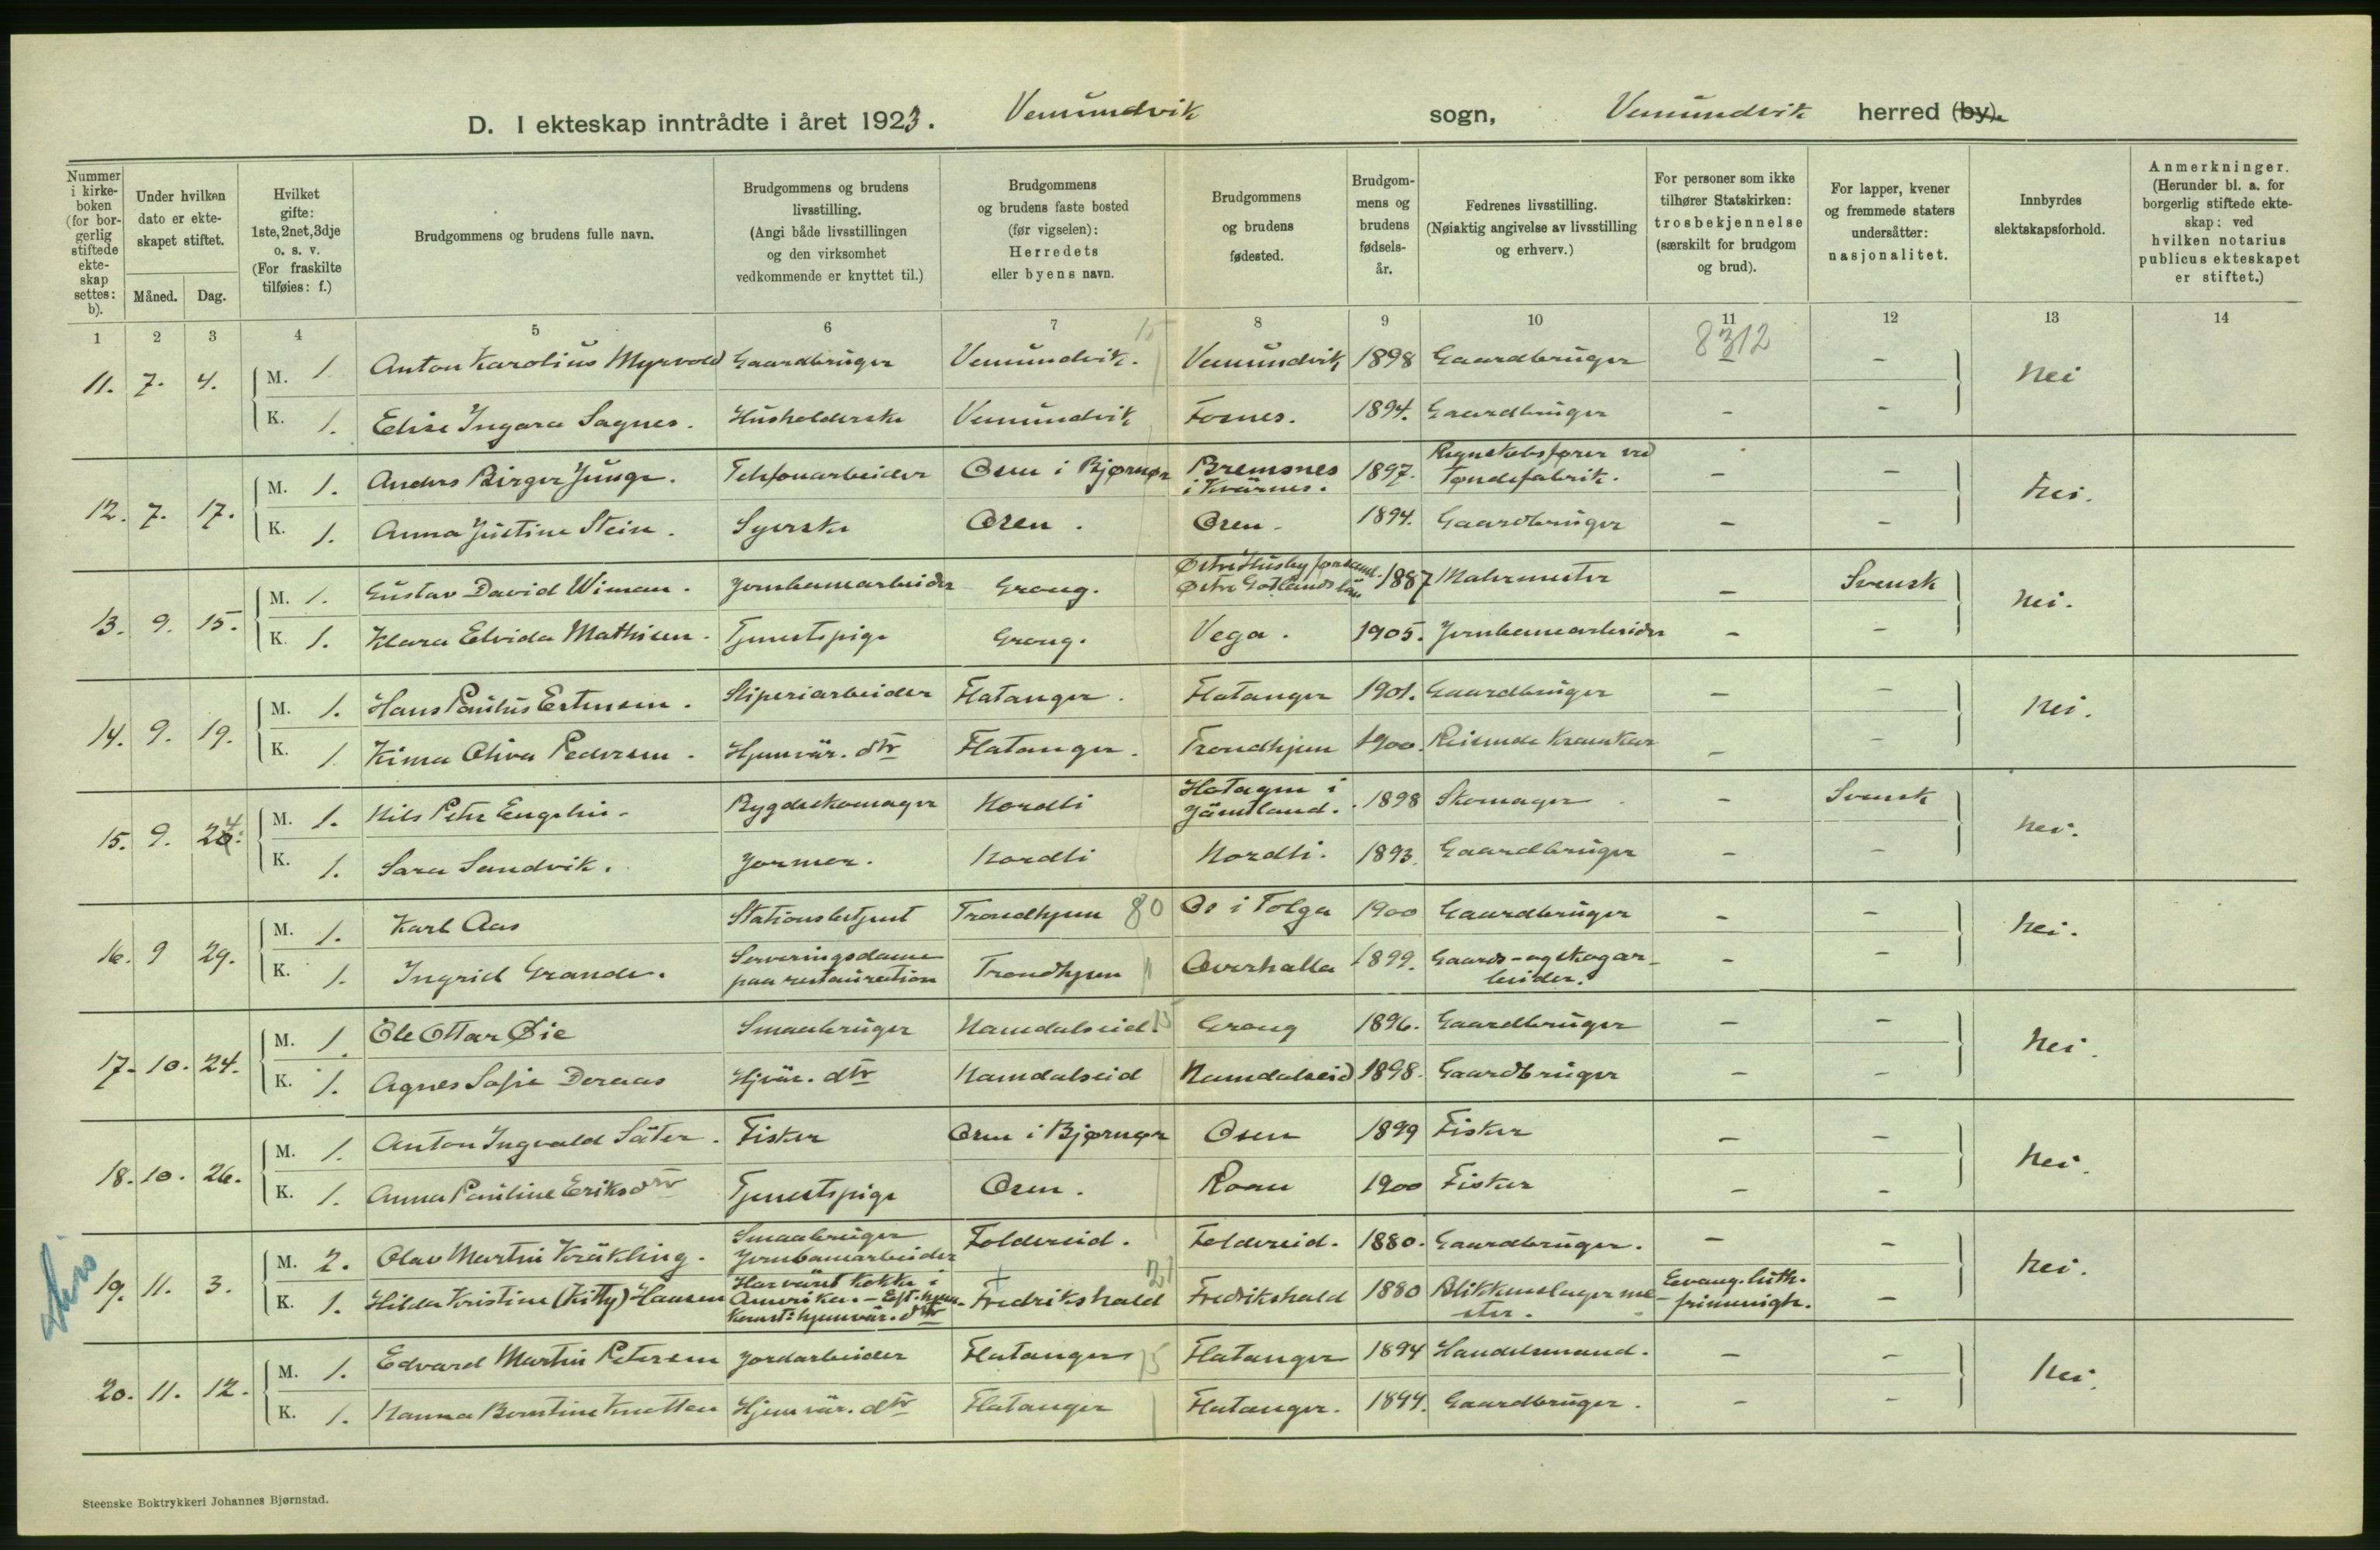 D. I ekteskap inntrådte i året 1923. Vemundvik sogn, Vemundvik herred (by).
Nummer i kirkeboken (for borgerlig stiftede ekteskap settes: b).
Under hvilken dato er ekteskapet stiftet.
Måned. Dag.
Hvilket gifte: 1ste, 2net, 3dje o. s. v. (For fraskilte tilføies: f.)
Brudgommens og brudens fulle navn.
Brudgommens og brudens livsstilling. (Angi både livsstillingen og den virksomhet vedkommende er knyttet til.)
Brudgommens og brudens faste bosted (før vigselen): Herredets eller byens navn.
Brudgommens og brudens fødested.
Brudgommens og brudens fødselsår.
Fedrenes livsstilling. (Nøiaktig angivelse av livsstilling og erhverv.)
For personer som ikke tilhører Statskirken: trosbekjennelse (særskilt for brudgom og brud).
For lapper, kvener og fremmede staters undersåtter: nasjonalitet.
Innbyrdes slektskapsforhold.
Anmerkninger. (Herunder bl. a. for borgerlig stiftede ekteskap: ved hvilken notarius publicus ekteskapet er stiftet.)
1 2 3 4 5 6 7 8 9 10 11 12 13 14
15 8312
11. 7. 4. M. 1. Anton Karolius Myrvold Gaardbruger Vemundvik. Vemundvik 1898 Gaardbruger - - Nei
K. 1. Elise Ingara Sagnes. Husholderske Vemundvik Fosnes. 1894. Gaardbruger - -
12. 7. 17. M. 1. Anders Birger Junge. Telefonarbeider Osen i Bjørnør Bremsnes i Kvernes. 1897. Regnskabsfører ved Tøndefabrik. - - Nei.
K. 1. Anna Justine Stein. Syerske Osen. Osen. 1894. Gaardbruger - -
13. 9. 15. M. 1. Gustav David Wiman. Jernbanearbeider Grong. Østre Husby forsaml. Østre Gotlands län 1887 Malermester - Svensk Nei.
K. 1. Klara Elvida Mathisen. Tjenestpige Grong. Vega. 1905. Jernbanearbeider - -
14. 9. 19. M. 1. Hans Paulus Estensen. Stiperiarbeider Flatanger. Flatanger 1901. Gaardbruger - - Nei.
K. 1. Kima Oliva Pedersen. Hjemvær. dtr Flatanger. Trondhjem 1900. Reisende Kræmker - -
15. 9. 24. M. 1. Nils Peter Engelin. Bygdeskomager Nordli Hotagen i Jämtland. 1898 Skomager - Svensk Nei.
K. 1. Sara Sandvik. Jormor. Nordli Nordli. 1893. Gaardbruger - -
16. 9 29. M. 1. Karl Aas Stationsbetjent Trondhjem 80 Os i Tolga 1900 Gaardbruger - - Nei.
K. 1. Ingrid Grande. Serveringsdame paa restauration Trondhjem " Overhalla 1899. Gaards- og skogarbeider. - -
17. 10. 24. M. 1. Ole Ottar Øie Smaabruger Namdalseid. 15 Grong 1896. Gaardbruger - - Nei.
K. 1. Agnes Sofie Deraas Hjvær. dtr Namdalseid Namdalseid 1898. Gaardbruger - -
18. 10. 26. M. 1. Anton Ingvald Säter. Fisker Osen i Bjørnør Osen 1899 Fisker - - Nei.
K. 1. Anna Pauline Eriksdtr Tjenestpige Osen. Roan 1900 Fisker - -
19. 11. 3. M. 2. Olav Martin Kräkling. Smaabruger Jernbanearbeider Foldereid. Foldereid. 1880. Gaardbruger. - - Nei.
K. 1. Hilda Kristine (Kitty) Hansen Har været kokke i Amerika. - Eft. hjemkomst: hjemvær. dtr Fredrikshald 21 Fredrikshald 1880 Blikkenslagermester. Evang. luth. frimenigh. -
20. 11. 12. M. 1. Edvard Martin Petersen Jordarbeider Flatanger 15 Flatanger 1894 Handelsmand. - - Nei.
K. 1. Hanna Berntine Knutten Hjemvær. dtr Flatanger Flatanger. 1894. Gaardbruger. - -
Steenske Boktrykkeri Johannes Bjørnstad.